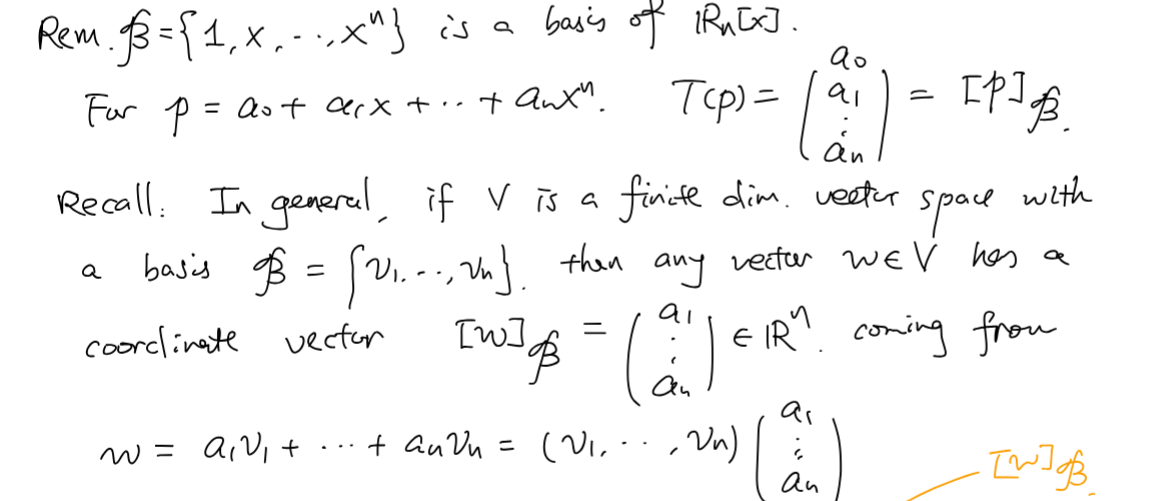 Rem. ℬ = {1, x, ..., xⁿ} is a basis of ℝₙ[x].
For p = a₀ + a₁x + ... + aₙxⁿ. T(p) = (a₀ a₁ ⋮ aₙ) = [p]_ℬ.
Recall: In general, if V is a finite dim. vector space with
a basis ℬ = {v₁, ..., vₙ}, then any vector w ∈ V has a
coordinate vector [w]_ℬ = (a₁ ⋮ aₙ) ∈ ℝⁿ. coming from
w = a₁v₁ + ... + aₙvₙ = (v₁, ..., vₙ) (a₁ ⋮ aₙ)
[w]_ℬ.